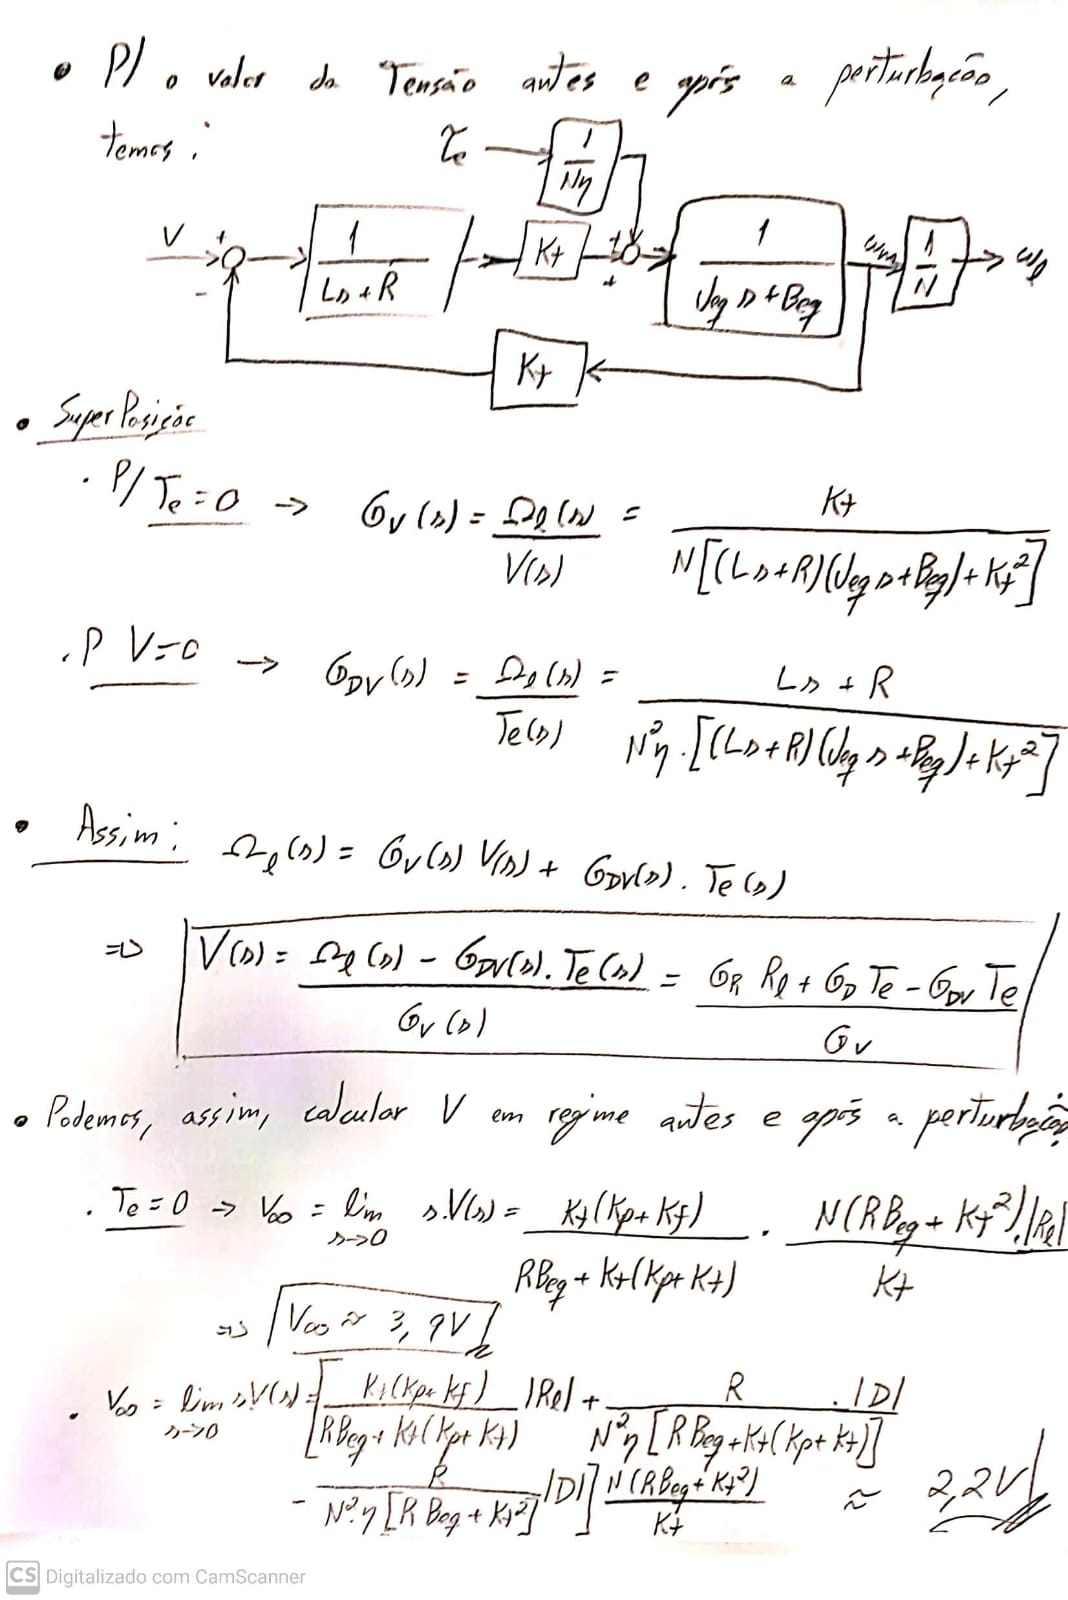 • P/ o valor da Tensão antes e após a perturbação,
temos:
τe → 1/(Nη)
V + - 1/(Ls + R) Kt + + 1/(Jeq s + Beq) ωm 1/N → ωl
Kt
• SuperPosição
· P/ Te = 0 → Gv(s) = Ωl(s)/V(s) = Kt/(N[(Ls+R)(Jeq s+Beq)+Kt²])
· P V=0 → GDV(s) = Ωl(s)/Te(s) = (Ls + R)/(N²η·[(Ls+R)(Jeq s+Beq)+Kt²])
• Assim: Ωl(s) = Gv(s) V(s) + GDV(s). Te(s)
⇒ V(s) = (Ωl(s) - GDV(s). Te(s))/Gv(s) = (GR Rl + GD Te - GDV Te)/Gv
• Podemos, assim, calcular V em regime antes e após a perturbação
· Te = 0 → V∞ = lim s→0 s.V(s) = Kt(Kp+Kf)/(RBeq + Kt(Kp+Kt)) . N(RBeq + Kt²).|Rl|/Kt
⇒ V∞ ≈ 3,9V
· V∞ = lim s→0 sV(s) = [Kt(Kp+Kf)/(RBeq + Kt(Kp+Kt)) |Rl| + R/(N²η[RBeq+Kt(Kp+Kt)]) .|D|
- R/(N²η[R Beq + Kt²]) |D|] N(RBeq+Kt²)/Kt ≈ 2,2V
CS Digitalizado com CamScanner